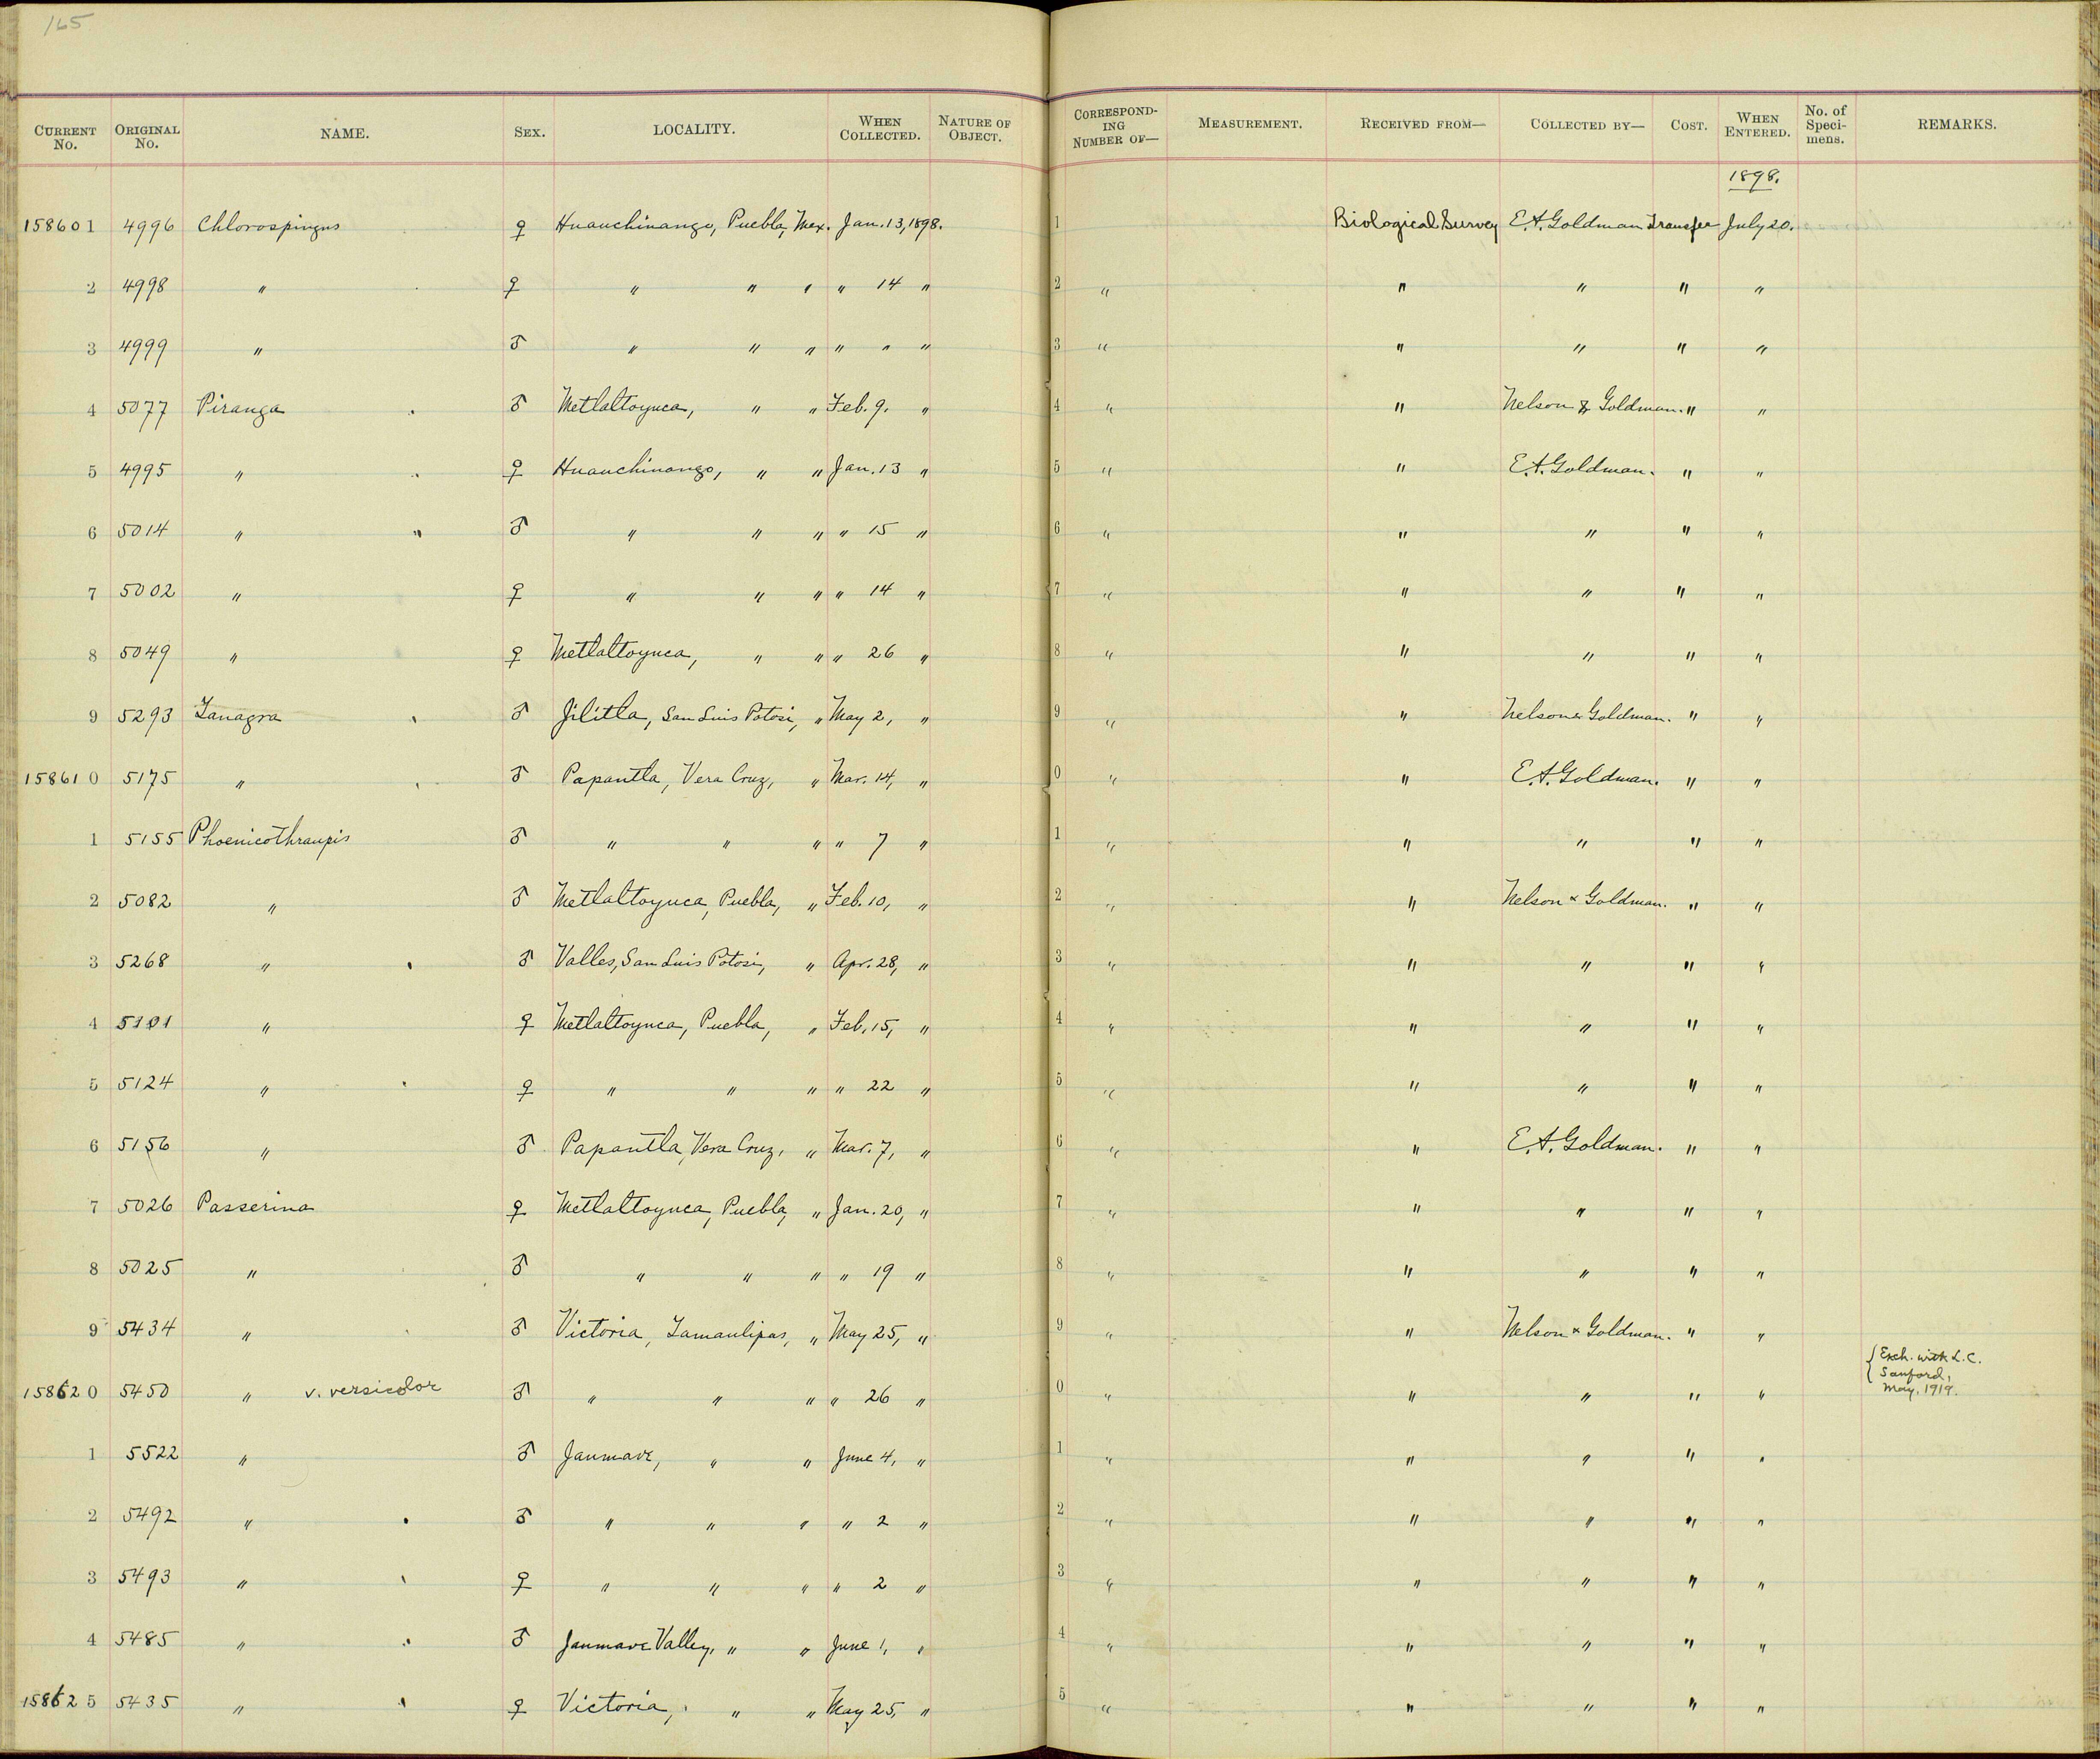 165
CURRENT No. ORIGINAL No. NAME. SEX. LOCALITY. WHEN COLLECTED. NATURE OF OBJECT. CORRESPONDING NUMBER OF— MEASUREMENT. RECEIVED FROM— COLLECTED BY— COST. WHEN ENTERED. No. of Specimens. REMARKS.
1898.
158601 4996 Chlorospingus ♀ Huauchinango, Puebla, Mex. Jan. 13, 1898. 1 Biological Survey E.A. Goldman Transfer July 20.
2 4998 " ♀ " " " " 14 " 2 " " " " "
3 4999 " ♂ " " " " " " 3 " " " " "
4 5077 Piranga ♂ Metlaltoyuca, " " Feb. 9. " 4 " " Nelson & Goldman. " "
5 4995 " ♀ Huauchinango, " " Jan. 13 " 5 " " E.A. Goldman. " "
6 5014 " " ♂ " " " " 15 " 6 " " " " "
7 5002 " ♀ " " " " 14 " 7 " " " " "
8 5049 " ♀ Metlaltoyuca, " " " 26 " 8 " " " " "
9 5293 Tanagra ♂ Jilitla, San Luis Potosi, " May 2, " 9 " " Nelson & Goldman. " "
158610 5175 " ♂ Papantla, Vera Cruz, " Mar. 14, " 0 " " E.A. Goldman. " "
1 5155 Phoenicothraupis ♂ " " " " 7 " 1 " " " " "
2 5082 " ♂ Metlaltoyuca, Puebla, " Feb. 10, " 2 " " Nelson & Goldman. " "
3 5268 " ♂ Valles, San Luis Potosi, " Apr. 28, " 3 " " " " "
4 5101 " ♀ Metlaltoyuca, Puebla, " Feb. 15, " 4 " " " " "
5 5124 " ♀ " " " " 22 " 5 " " " " "
6 5156 " ♂ Papantla, Vera Cruz, " Mar. 7, " 6 " " E.A. Goldman. " "
7 5026 Passerina ♀ Metlaltoyuca, Puebla, " Jan. 20, " 7 " " " " "
8 5025 " ♂ " " " " 19 " 8 " " " " "
9 5434 " ♂ Victoria, Tamaulipas, " May 25, " 9 " " Nelson & Goldman. " "
158620 5450 " v. versicolor ♂ " " " " 26 " 0 " " " " " { Exch. with L.C.
Sanford,
May, 1919.
1 5522 " ♂ Jaumave, " " June 4, " 1 " " " " "
2 5492 " ♂ " " " " 2 " 2 " " " " "
3 5493 " ♀ " " " " 2 " 3 " " " " "
4 5485 " ♂ Jaumave Valley, " " June 1, " 4 " " " " "
158625 5435 " ♀ Victoria, " " May 25, " 5 " " " " "